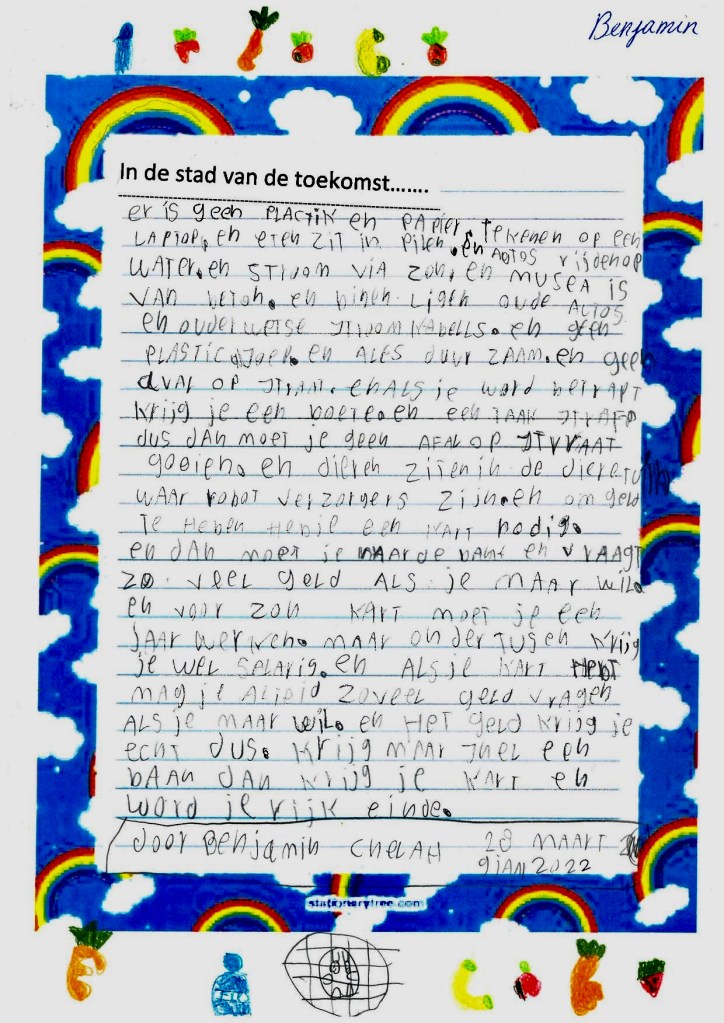 Benjamin
In de stad van de toekomst.......
er is geen PLACTIK en PAPier, TeKenen op een
LAPTOP, en eten ziT in Pilen. en AUTOS rijden op
WATER. en STrOOM VIA ZON, en MUSEA is
VAN beton. en binen Ligen oude AUTOS.
en ouderwetse STrOOM KAbells. en geen
PLASTIC SOeP. en ALES duurZAAM. en geen
afVAL OP STrAAT. en ALS je word beTrAPT
Krijg je een boete. en een TAAK STrAFP
dus dAn moeT je geen AFAL OP STrAAT
gooien. en dieren ziTen in de diereTuin
waar roboT verzorgers zijn. en om geld
Te Heben Heb je een KArT nodig.
en dAn moeT je naar de bank en vrAAgT
zo veel geld ALS je MAAr wil.
en voor zon KArT moeT je een
jAAr werken. MAAr onderTusen Krijg
je weL SeLArig. en ALS je KArT HebT
mag je ALTeid zoveel geld vragen
ALS je MAAr wil. en HeT geld Krijg je
echT dus. Krijg MAAr SneL een
bAAn dAn Krijg je KArT en
word je rijk einde.
door Benjamin CHeLAH 28 MAArT
9 jAn 2022
stationerytree.com